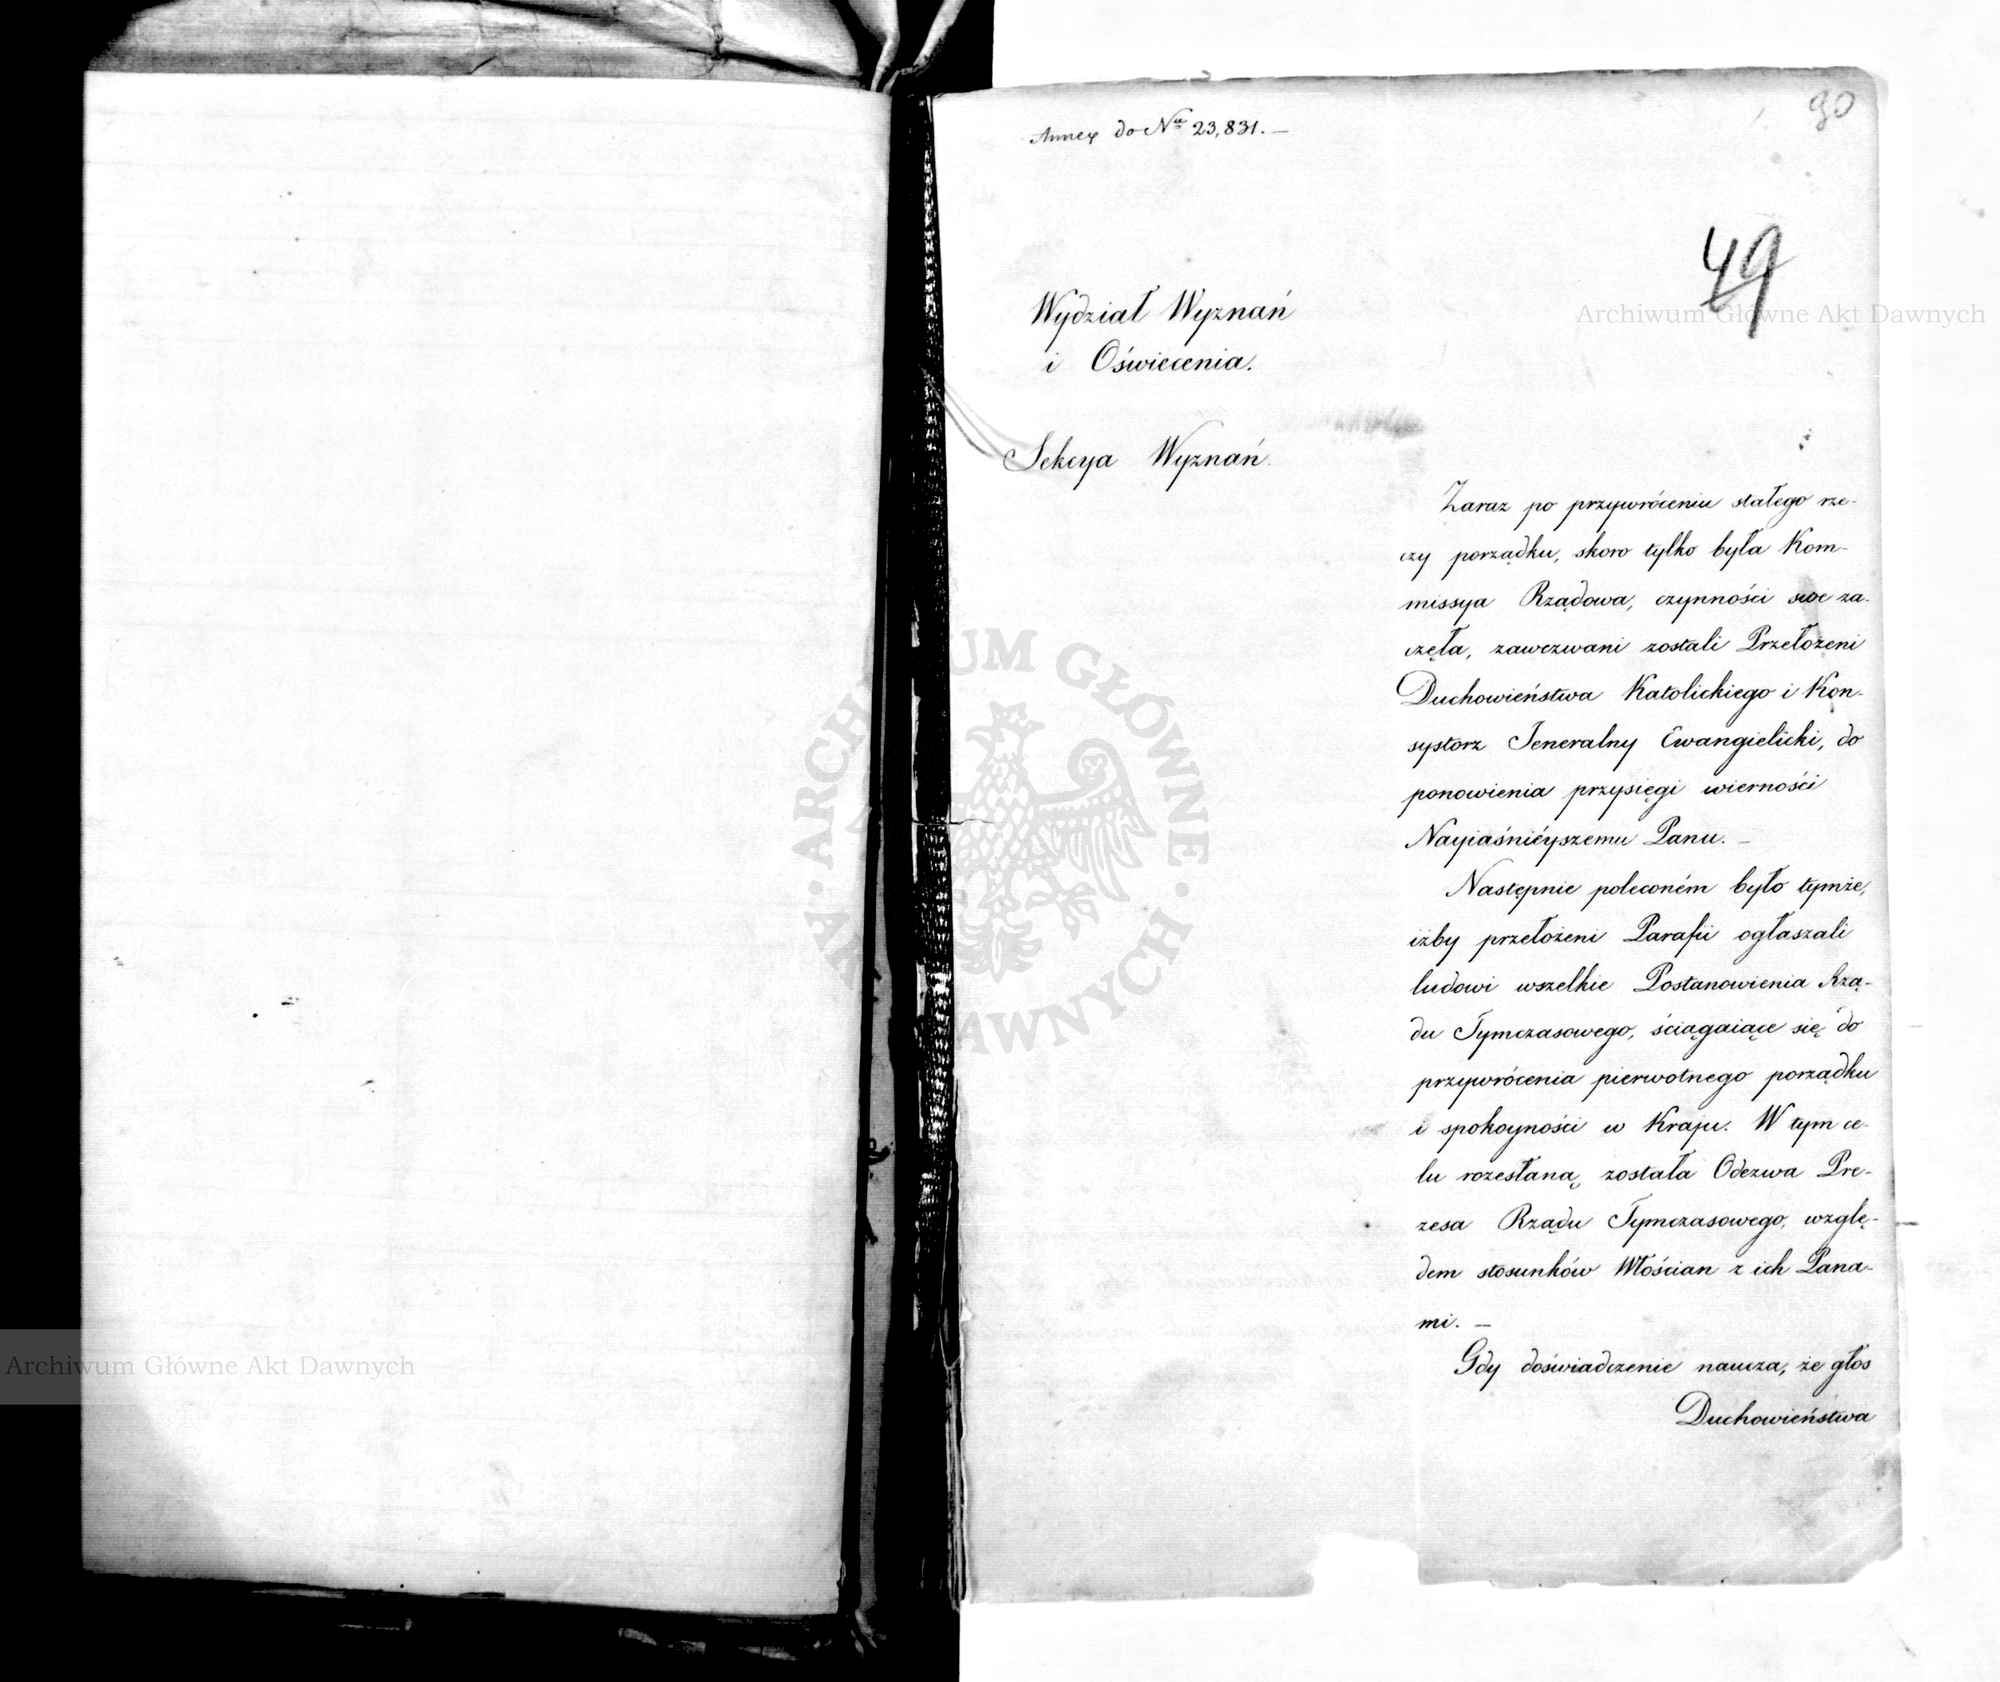 90
Annex do Nru 23,831. —
49
Wydział Wyznań
i Oświecenia.
Sekcya Wyznań.
Zaraz po przywróceniu stałego rze-
czy porządku, skoro tylko była Kom-
missya Rządowa, czynności swe za-
częła, zawezwani zostali Przełożeni
Duchowieństwa Katolickiego i Kon-
systorz Jeneralny Ewangielicki, do
ponowienia przysięgi wierności
Nayiaśniéyszemu Panu. —
Następnie poleconém było tymże,
iżby przełożeni Parafii ogłaszali
ludowi wszelkie Postanowienia Rzą-
du Tymczasowego, ściągaiące się do
przywrócenia pierwotnego porządku
i spokoyności w Kraju. W tym ce-
lu rozesłaną została Odezwa Pre-
zesa Rządu Tymczasowego, wzglę-
dem stosunków Włościan z ich Pana-
mi. —
Gdy doświadczenie naucza, że głos
Duchowieństwa
Archiwum Główne Akt Dawnych
Archiwum Główne Akt Dawnych